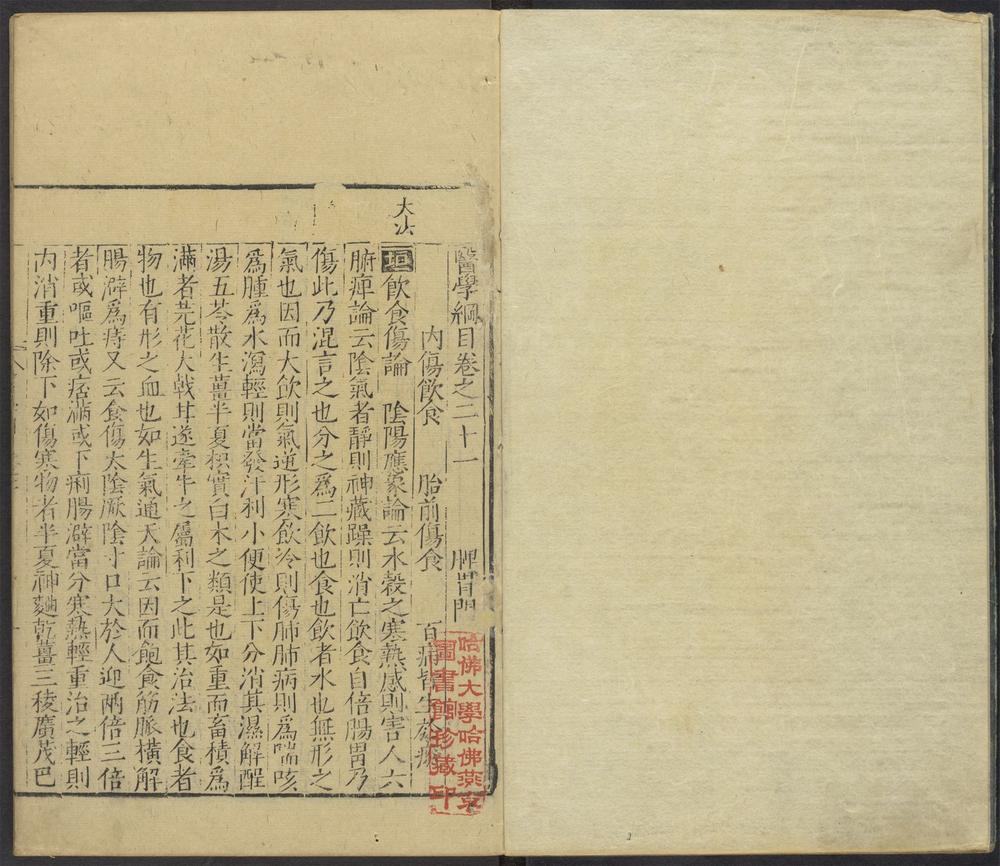 醫學綱目卷之二十一　脾胃門
內傷飲食　胎前傷食　百病皆生於
大法
垣飲食傷論　陰陽應象論云水穀之寒熱感則害人六
腑痺論云陰氣者靜則神藏躁則消亡飲食自倍腸胃乃
傷此乃混言之也分之爲二飲也食也飲者水也無形之
氣也因而大飲則氣逆形寒飲冷則傷肺肺病則爲喘咳
爲腫爲水瀉輕則當發汗利小便使上下分消其濕解酲
湯五苓散生薑半夏枳實白朮之類是也如重而畜積爲
滿者芫花大戟甘遂牽牛之屬利下之此其治法也食者
物也有形之血也如生氣通天論云因而飽食筋脈橫解
腸澼爲痔又云食傷太陰厥陰寸口大於人迎兩倍三倍
者或嘔吐或痞滿或下痢腸澼當分寒熱輕重治之輕則
內消重則除下如傷寒物者半夏神麯乾薑三稜廣茂巴
哈佛大學哈佛燕京
圖書館珍藏印